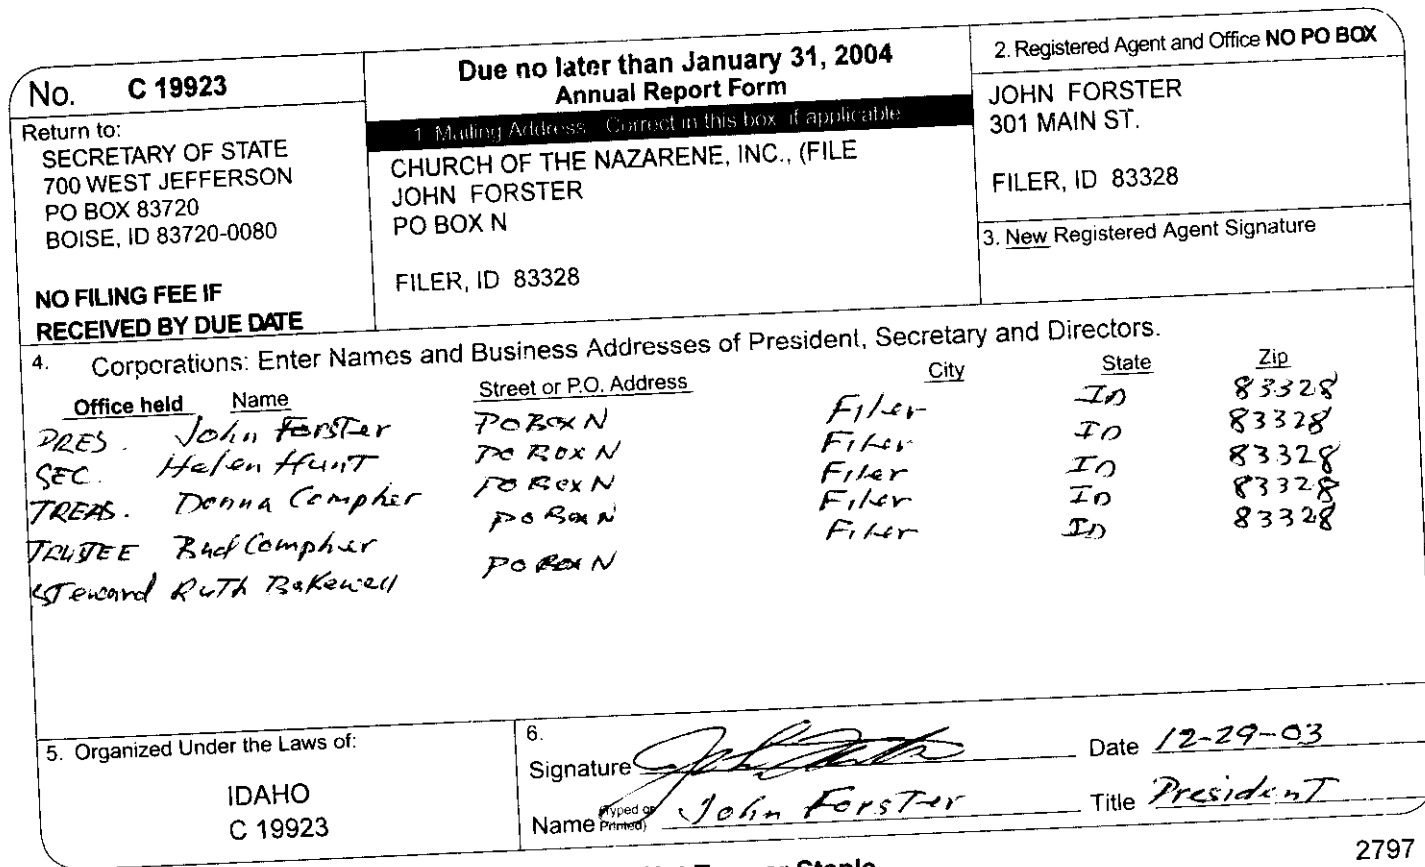 No. C 19923
Return to:
SECRETARY OF STATE
700 WEST JEFFERSON
PO BOX 83720
BOISE, ID 83720-0080
NO FILING FEE IF
RECEIVED BY DUE DATE
Due no later than January 31, 2004
Annual Report Form
1. Mailing Address. Correct in this box if applicable
CHURCH OF THE NAZARENE, INC., (FILE
JOHN FORSTER
PO BOX N
FILER, ID 83328
2. Registered Agent and Office NO PO BOX
JOHN FORSTER
301 MAIN ST.
FILER, ID 83328
3. New Registered Agent Signature
4. Corporations: Enter Names and Business Addresses of President, Secretary and Directors.
Office held Name Street or P.O. Address City State Zip
PRES. John Forster PO Box N Filer ID 83328
SEC. Helen Hunt PO Box N Filer ID 83328
TREAS. Donna Compher PO Box N Filer ID 83328
TRUSTEE Bud Compher PO Box N Filer ID 83328
Steward Ruth Bakewell PO Box N Filer ID 83328
5. Organized Under the Laws of:
IDAHO
C 19923
6.
Signature John Forster Date 12-29-03
Name (Typed or Printed) John Forster Title President
2797